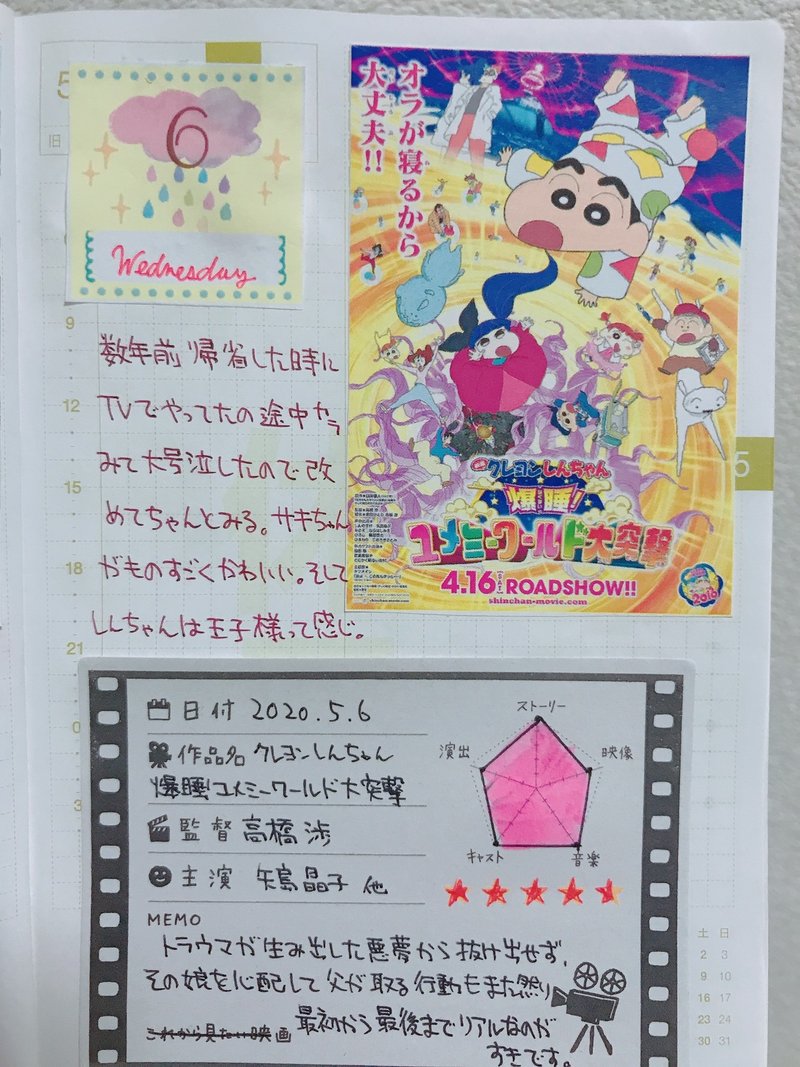 5
6
Wednesday
旧
9
12
15
18
21
0
3
数年前帰省した時に
TVでやってたの途中から
みて大号泣したので改
めてちゃんとみる。サキちゃん
がものすごくかわいい。そして
しんちゃんは王子様って感じ。
オラが寝るから
大丈夫!!
映画
クレヨンしんちゃん
爆睡!
ユメミーワールド大突撃
4.16 SAT ROADSHOW!!
shinchan-movie.com
2016
5
日付 2020.5.6
作品名 クレヨンしんちゃん
爆睡!ユメミーワールド大突撃
監督 高橋渉
主演 矢島晶子 他
ストーリー
演出
映像
キャスト
音楽
MEMO
トラウマが生み出した悪夢から抜け出せず、
その娘を心配して父が取る行動もまた然り
最初から最後までリアルなのが
すきです。
これから見たい映画
土 日
2 3
9 10
16 17
23 24
30 31